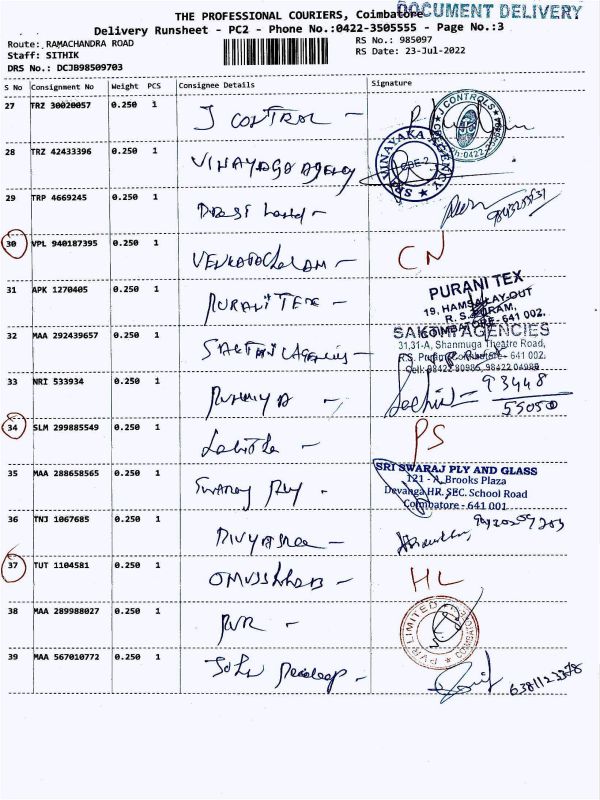 DOCUMENT DELIVERY
THE PROFESSIONAL COURIERS, Coimbatore
Delivery Runsheet - PC2 - Phone No.:0422-3505555 - Page No.:3
Route: RAMACHANDRA ROAD RS No.: 985097
Staff: SITHIK RS Date: 23-Jul-2022
DRS No.: DCJB98509703
S No Consignment No Weight PCS Consignee Details Signature
27 TRZ 30020057 0.250 1 J CONTROL -
J CONTROLS
28 TRZ 42433396 0.250 1 VINAYAGA AGENCY
SRI VINAYAKA AGENCY CBE-2
29 TRP 4669245 0.250 1
30 VPL 940187395 0.250 1 VENKATACHALAM - CN
31 APK 1270405 0.250 1 PURANI TEX -
PURANI TEX
19, HAMSA LAY-OUT
R. S. PURAM,
COIMBATORE - 641 002.
32 MAA 292439657 0.250 1 SAKTHI Agencies -
SAKTHI AGENCIES
31,31-A, Shanmuga Theatre Road,
R.S. Puram, Coimbatore - 641 002.
Cell: 98422 80985, 98422 04988
33 NRI 533934 0.250 1 93448
55050
34 SLM 299885549 0.250 1 Lalitha - PS
35 MAA 288658565 0.250 1 Swaraj Ply -
SRI SWARAJ PLY AND GLASS
121 - A, Brooks Plaza
Devanga HR. SEC. School Road
Coimbatore - 641 001
36 TNJ 1067685 0.250 1 DIVYA
37 TUT 1104581 0.250 1 - HL
38 MAA 289988027 0.250 1 PVR -
PVR LIMITED COIMBATORE
39 MAA 567010772 0.250 1 John Pradeep -
6381123378